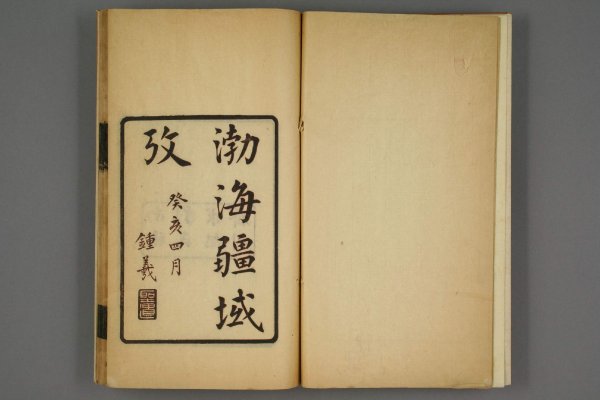 渤海疆域
攷
癸亥四月
鍾羲